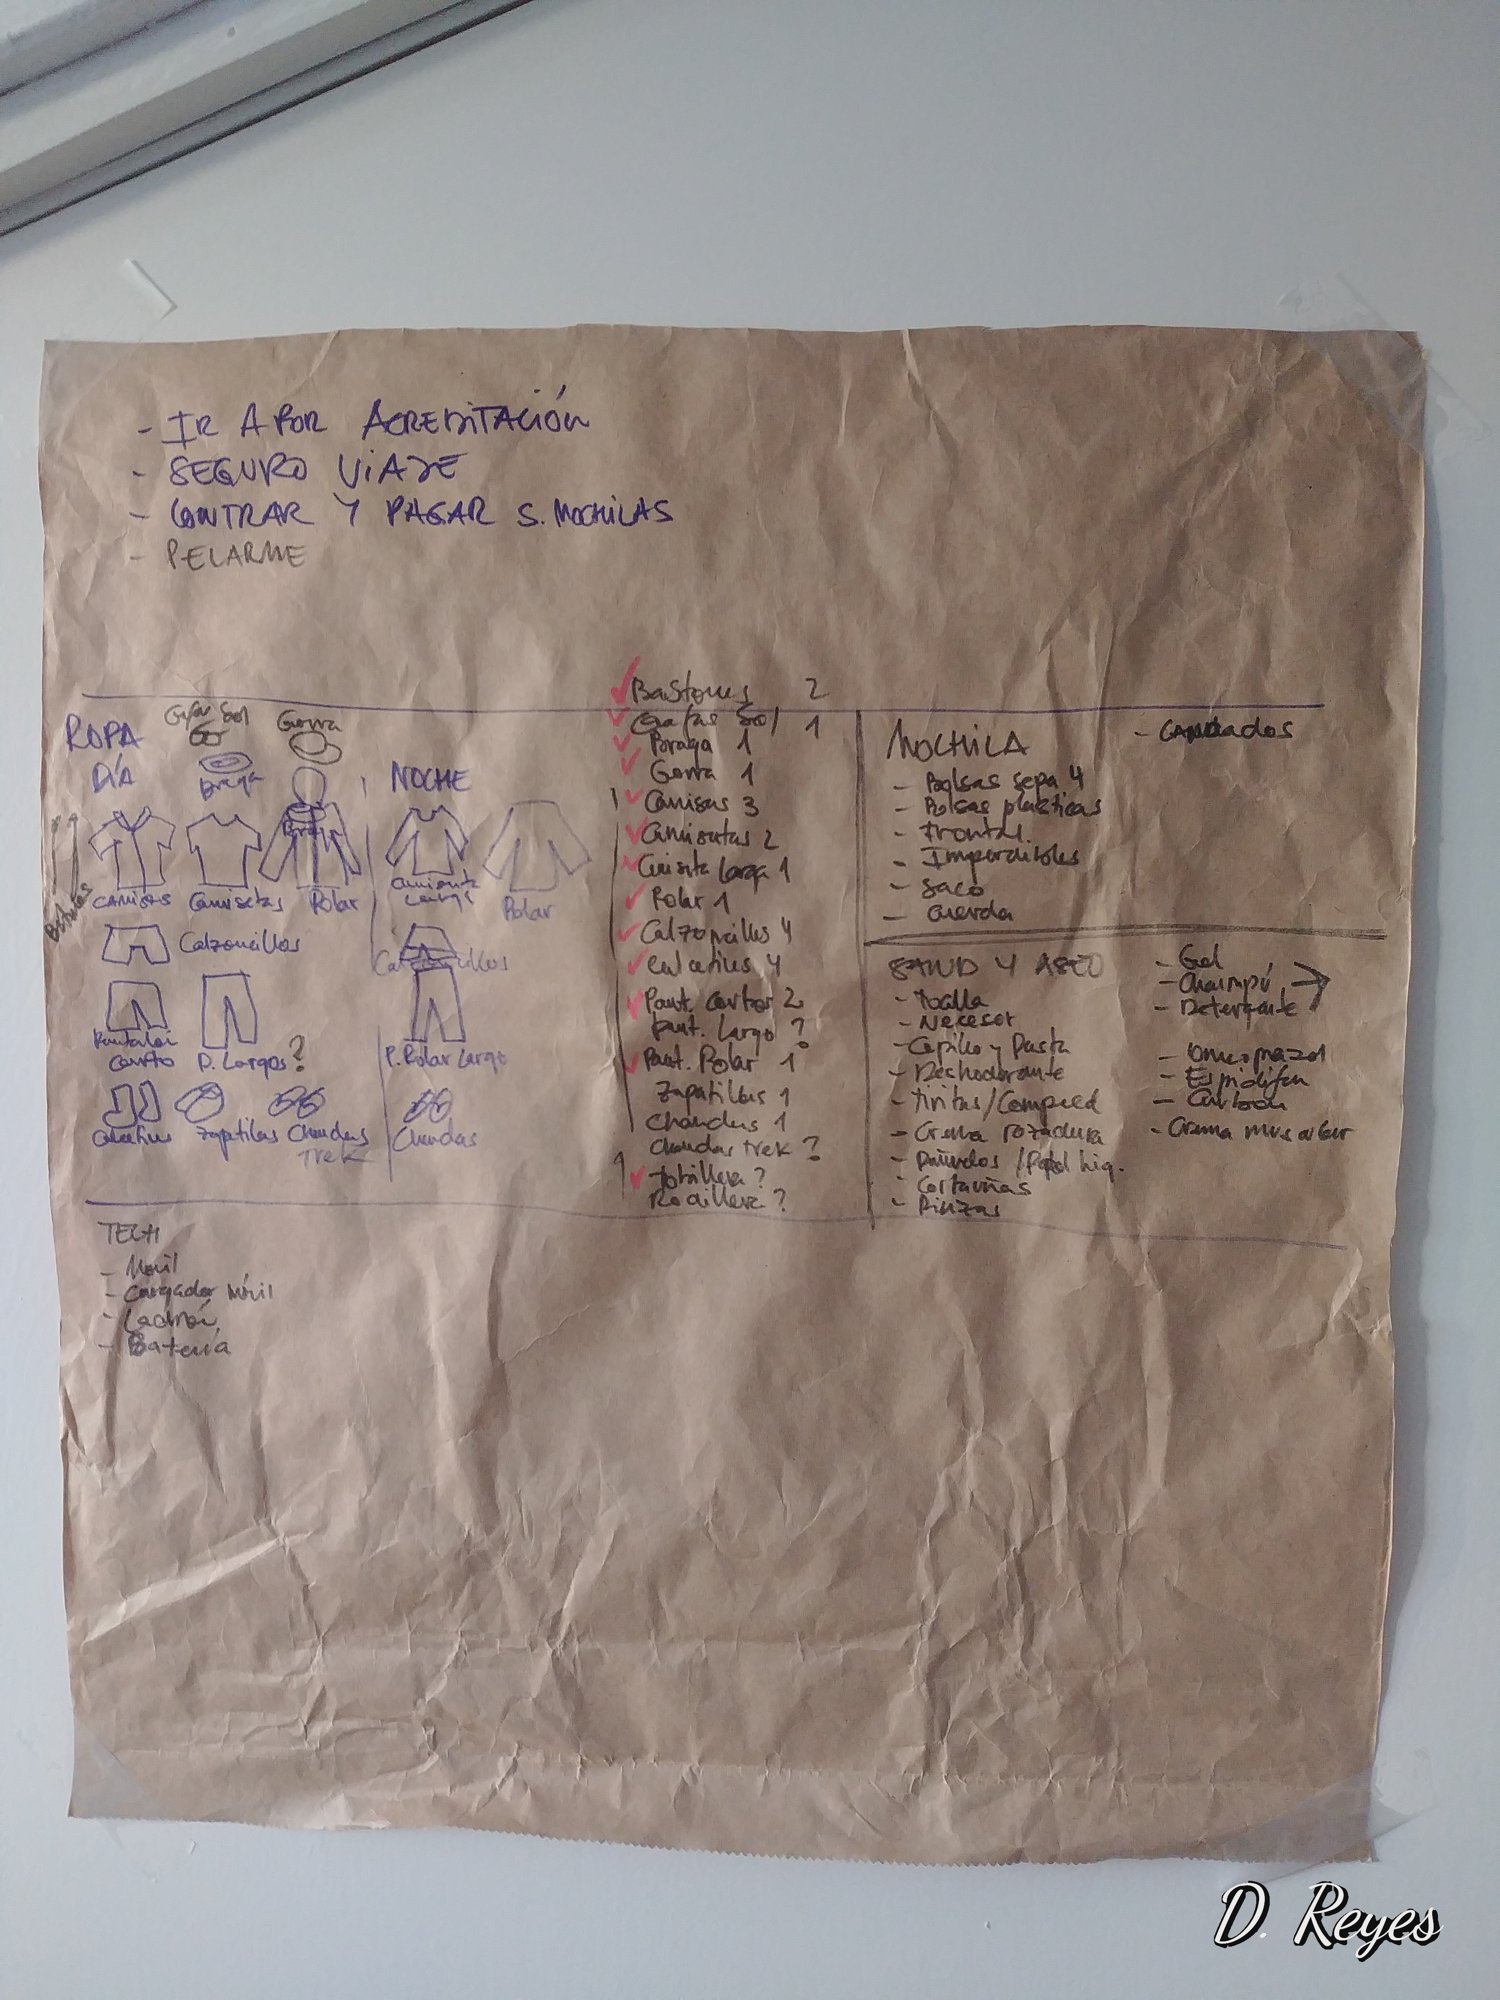 - IR A POR ACREDITACIÓN
- SEGURO VIAJE
- CONTRAR Y PAGAR S. MOCHILAS
- PELARME
ROPA
Gafas Sol
Gorra
DÍA
Braga
NOCHE
Bastones
CAMISAS
Camisetas
Polar
Camiseta Larga
Polar
Calzoncillos
Calzoncillos
Pantalon Corto
P. Largos?
P. Polar Largo
Calcetines
Zapatillas
Chanclas Trek
Chanclas
Bastones 2
Gafas Sol 1
Braga 1
Gorra 1
Camisas 3
Camisetas 2
Camiseta Larga 1
Polar 1
Calzoncillos 4
Calcetines 4
Pant. Cortos 2
Pant. Largo ?
Pant. Polar 1
Zapatillas 1
Chanclas 1
Chanclas Trek ?
Tobillera ?
Rodillera ?
MOCHILA
- Bolsas sepa 4
- Bolsas plasticas
- Frontal
- Imperdibles
- Saco
- Cuerda
- Candados
SALUD Y ASEO
- Toalla
- Neceser
- Cepillo y Pasta
- Deshodorante
- Tiritas/Compeed
- Crema rozadura
- Pañuelos / Papel hig.
- Cortauñas
- Pinzas
- Gel
- Champú
- Detergente
- Omeoprazol
- Espidifen
- Carbon
- Crema muscular
TECH
- Movil
- Cargador Móvil
- Ladrón
- Batería
D. Reyes